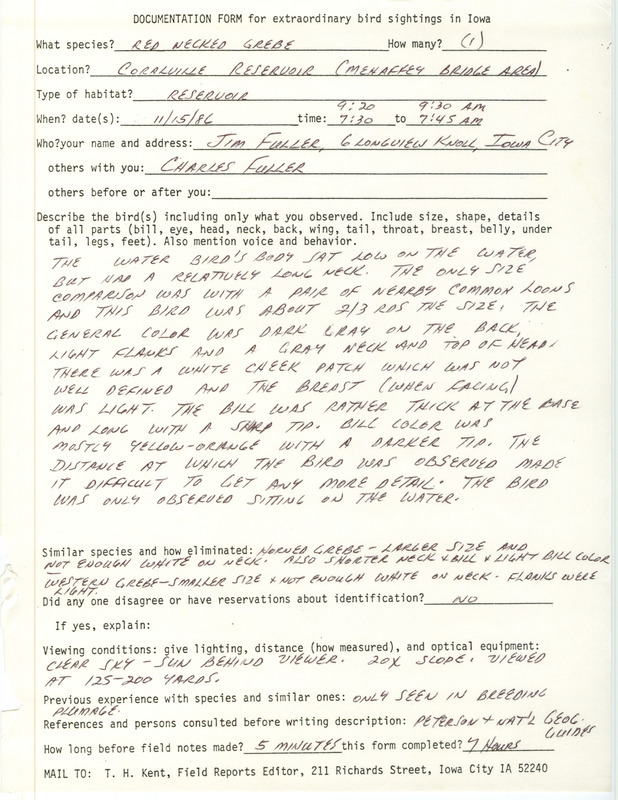 DOCUMENTATION FORM for extraordinary bird sightings in Iowa
What species? RED NECKED GREBE How many? (1)
Location? CORALVILLE RESERVOIR (MENAFFEY BRIDGE AREA)
Type of habitat? RESERVOIR
9:20 9:30 AM
When? date(s): 11/15/86 time: 7:30 to 7:45 AM
Who?your name and address: JIM FULLER, 6 LONGVIEW KNOLL, IOWA CITY
others with you: CHARLES FULLER
others before or after you:
Describe the bird(s) including only what you observed. Include size, shape, details
of all parts (bill, eye, head, neck, back, wing, tail, throat, breast, belly, under
tail, legs, feet). Also mention voice and behavior.
THE WATER BIRD'S BODY SAT LOW ON THE WATER,
BUT HAD A RELATIVELY LONG NECK. THE ONLY SIZE
COMPARISON WAS WITH A PAIR OF NEARBY COMMON LOONS
AND THIS BIRD WAS ABOUT 2/3 RDS THE SIZE. THE
GENERAL COLOR WAS DARK GRAY ON THE BACK,
LIGHT FLANKS AND A GRAY NECK AND TOP OF HEAD.
THERE WAS A WHITE CHEEK PATCH WHICH WAS NOT
WELL DEFINED AND THE BREAST (WHEN FACING)
WAS LIGHT. THE BILL WAS RATHER THICK AT THE BASE
AND LONG WITH A SHARP TIP. BILL COLOR WAS
MOSTLY YELLOW-ORANGE WITH A DARKER TIP. THE
DISTANCE AT WHICH THE BIRD WAS OBSERVED MADE
IT DIFFICULT TO GET ANY MORE DETAIL. THE BIRD
WAS ONLY OBSERVED SITTING ON THE WATER.
Similar species and how eliminated: HORNED GREBE - LARGER SIZE AND
NOT ENOUGH WHITE ON NECK. ALSO SHORTER NECK & BILL & LIGHT BILL COLOR
WESTERN GREBE-SMALLER SIZE & NOT ENOUGH WHITE ON NECK. FLANKS WERE
LIGHT.
Did any one disagree or have reservations about identification? NO
If yes, explain:
Viewing conditions: give lighting, distance (how measured), and optical equipment:
CLEAR SKY - SUN BEHIND VIEWER. 20X SLOPE. VIEWED
AT 125-200 YARDS.
Previous experience with species and similar ones: ONLY SEEN IN BREEDING
PLUMAGE.
References and persons consulted before writing description: PETERSON + NAT'L GEOG.
GUIDES
How long before field notes made? 5 MINUTES this form completed? 7 HOURS
MAIL TO: T. H. Kent, Field Reports Editor, 211 Richards Street, Iowa City IA 52240